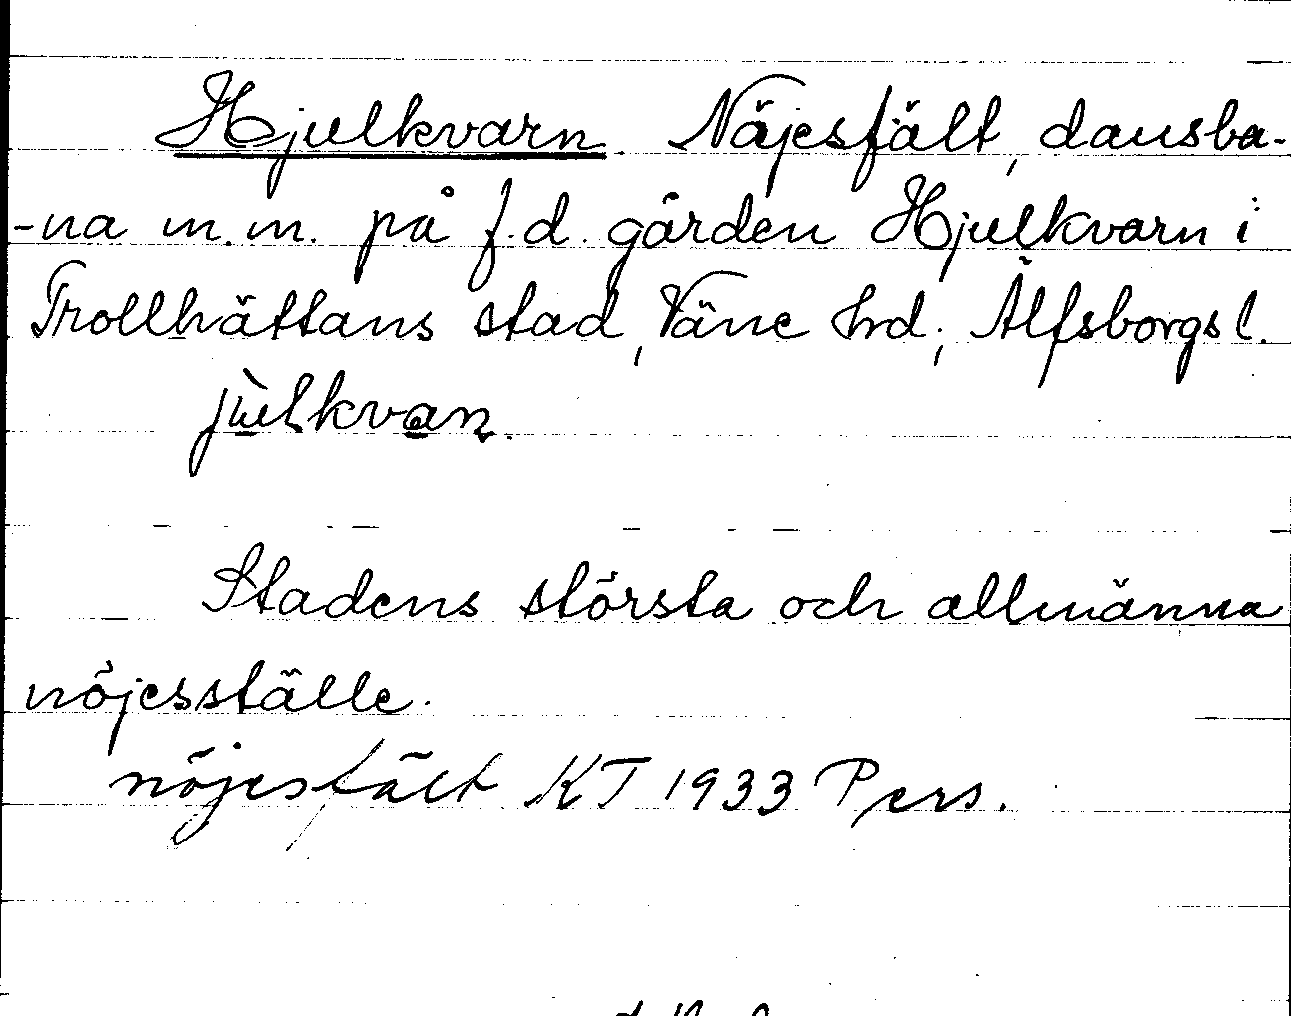 Hjulkvarn. Nöjesfält, dansba-
-na m.m. på f.d. gården Hjulkvarn i
Trollhättans stad, Väne hrd; Älfsborgs l.
jùlkvan.
Stadens största och allmänna
nöjesställe.
nöjesfält KT 1933 Pers.